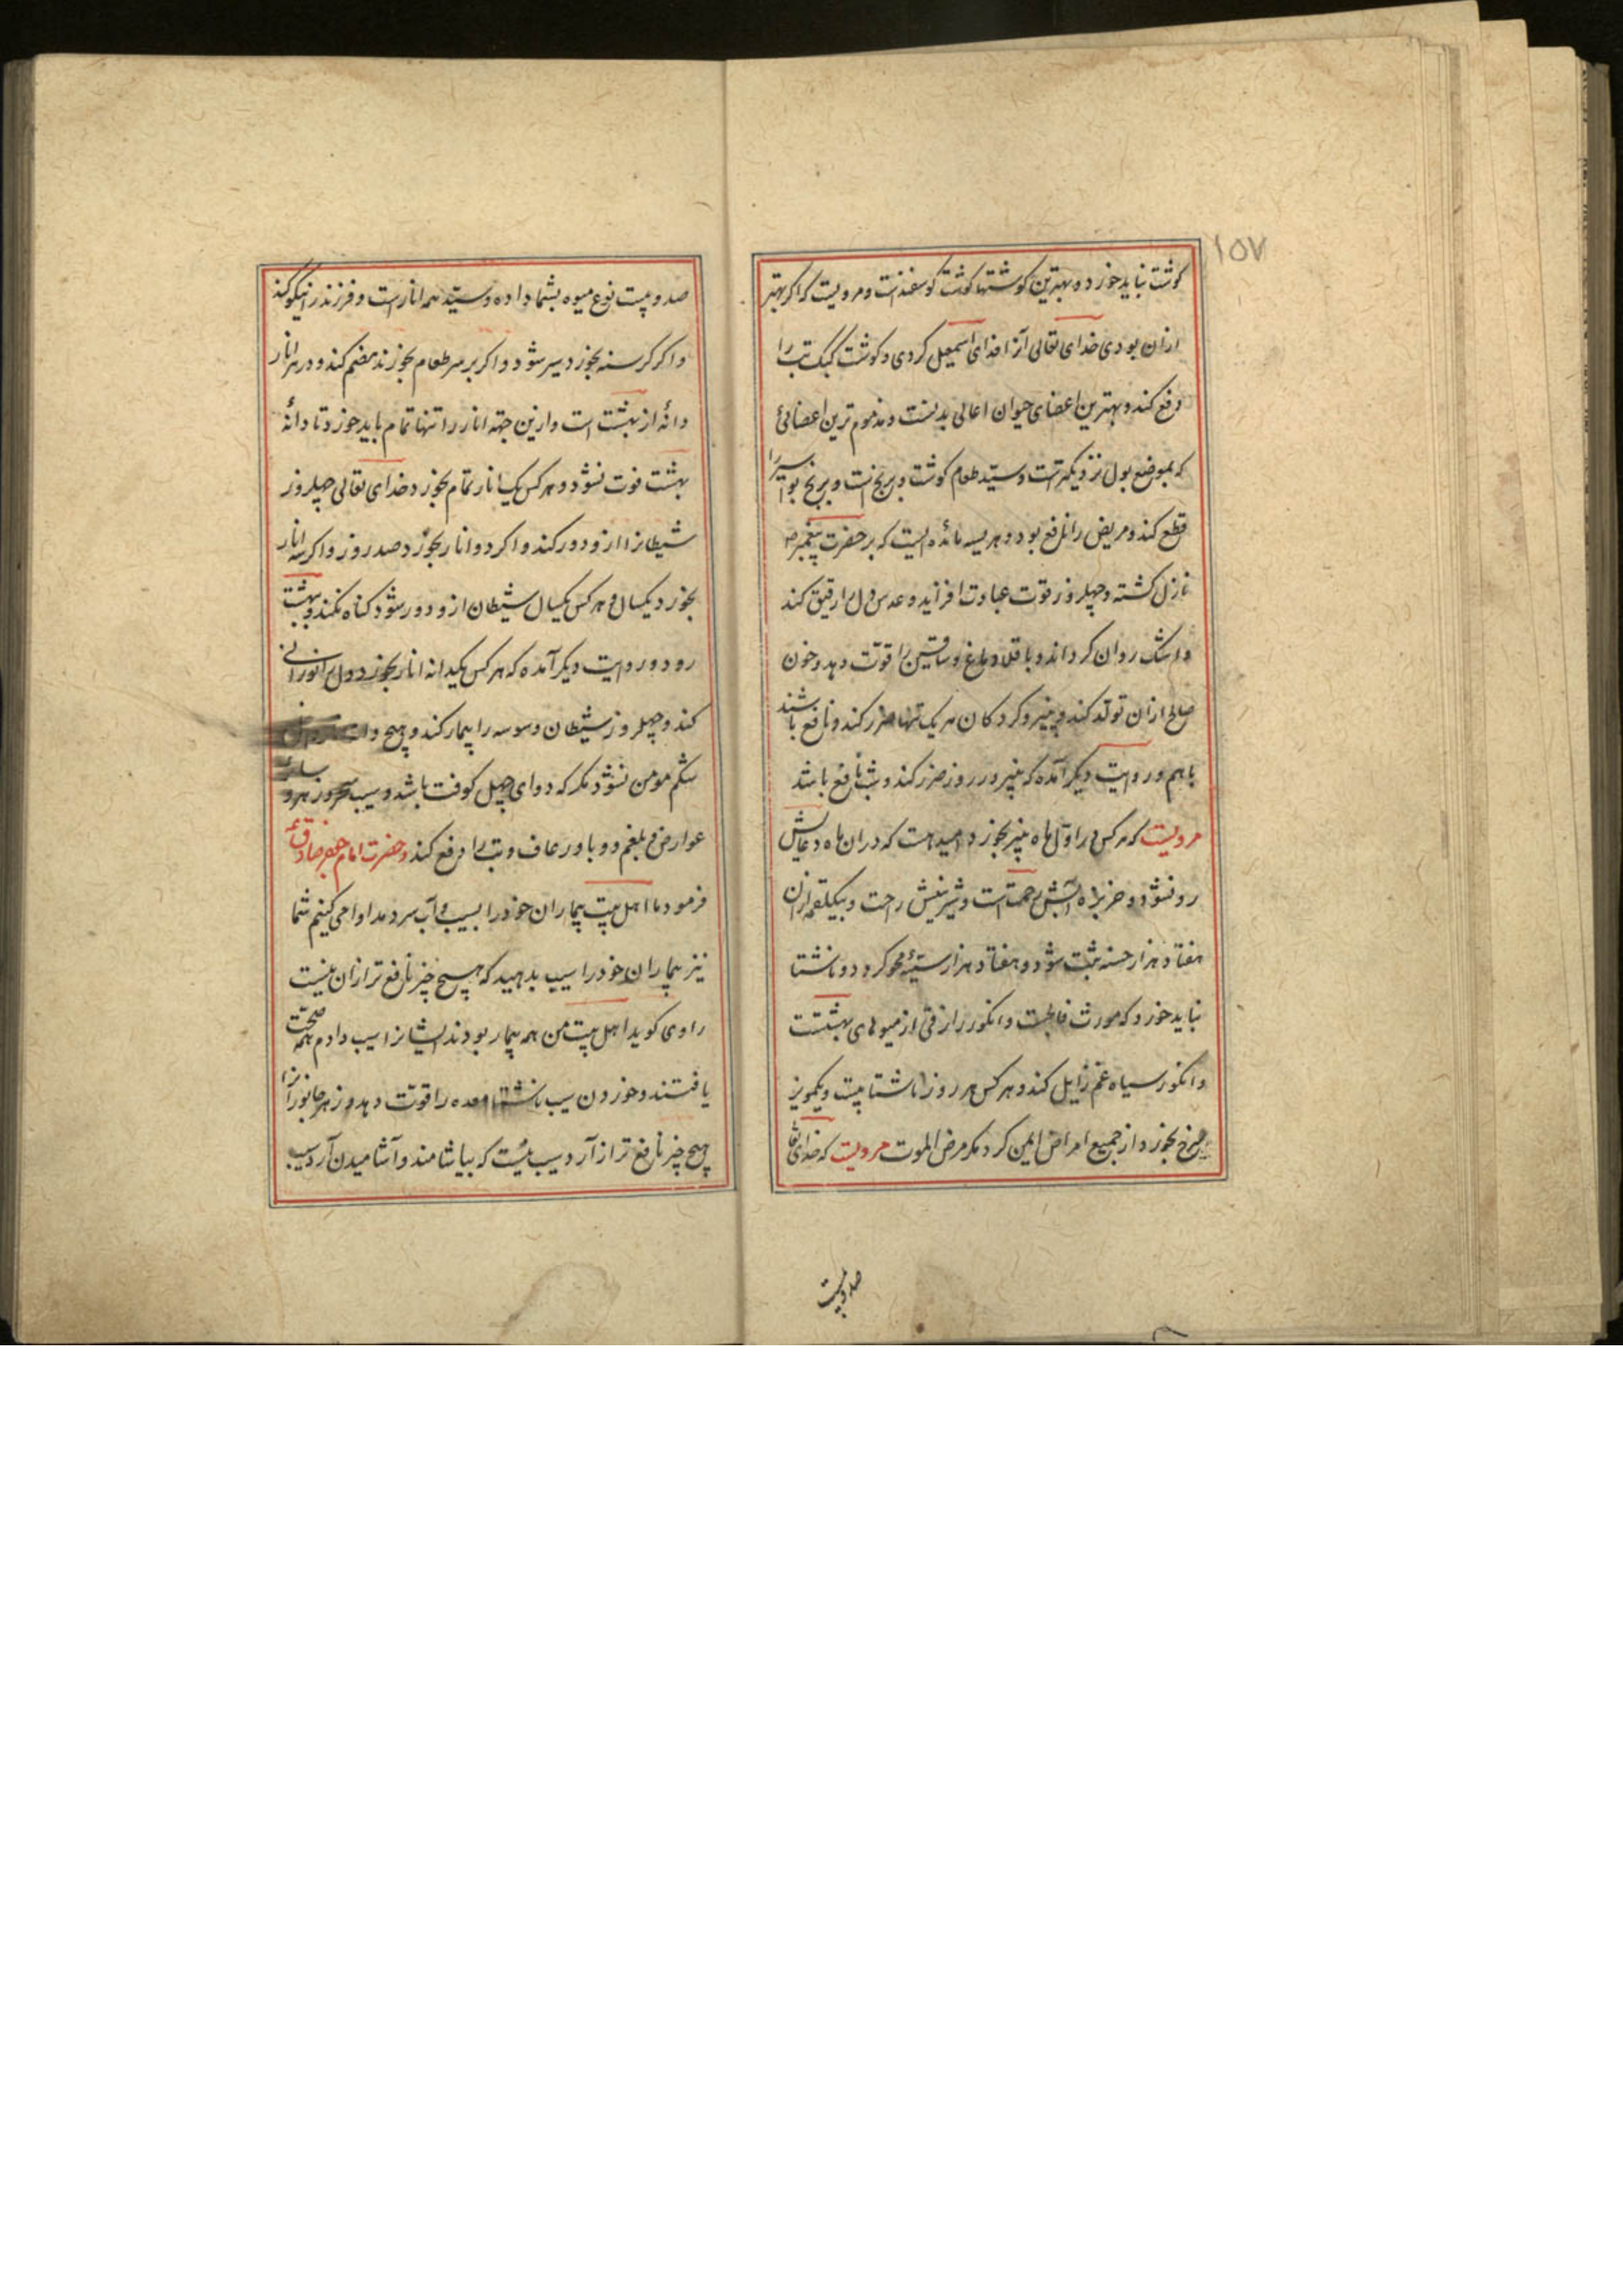 ۱۵۷
کوشت نباید خورد و بهترین کوشتها کوشت کوسفندست و مرویست که اکر بهتر
ازان بودی خدای تعالی آنرا فدای اسمعیل کردی و کوشت کبک تب را
دفع کند و بهترین اعضای حیوان اعالی بدنست و مذموم ترین اعضائی
که بموضع بول نزدیکترست و سید طعام کوشت و برنج است و برنج بواسیر را
قطع کند و مریض را نافع بود و هریسه مائده ایست که بر حضرت پیغمبر ص
نازل کشته و چهل روز قوت عبادت افزاید و عدس دل را رقیق کند
و اشک روان کرداند و باقلا دماغ و ساقین را قوت دهد و خون
صالح ازان تولد کند و پنیر و کردکان هر یک تنها ضرر کند و نافع باشند
باهم و روایت دیکر آمده که پنیر در روز ضرر کند و شب نافع باشد
مرویست که هر کس در اول ماه پنیر بخورد امید هست که دران ماه دعایش
رد نشود و خربزه آبش رحمت است و شیرینیش راحت و بیکلقمه ازان
هفتاد هزار حسنه ثبت شود و هفتاد هزار سیئه محو کردد و ناشتا
نباید خورد که مورث فالجست و انکور رازقی از میوهای بهشتست
و انکور سیاه غم زایل کند و هر کس هر روز ناشتا بیست و یکمویز
سرخ بخورد از جمیع امراض ایمن کردد مکر مرض الموت مرویست که خدای تعا
صد و بیست
صد و بیست نوع میوه بشما داده و سید همه انارست و فرزند را نیکو کند
و اکر کرسنه بخورد سیر شود و اکر بر سر طعام بخورند هضم کند و در هر انار
دانهٔ از بهشت است و ازین جهة انار را تنها تمام باید خورد تا دانهٔ
بهشت فوت نشود و هر کس یک انار تمام بخورد خدای تعالی چهل روز
شیطانرا ازو دور کند و اکر دو انار بخورد صد روز و اکر سه انار
بخورد یکسال و هر کس یکسال شیطان ازو دور شود کناه نکند و بهشت
رود و در روایت دیکر آمده که هر کس یکدانه انار بخورد دل را نورانی
کند و چهل روز شیطان وسوسه را بیمار کند و هیچ
شکم مومن نشود مکر که دوای چهل کوفت باشد و سیب
عوارض بلغم و وبا و رعاف و تب را دفع کند و حضرت امام جعفر صادق ع
فرمود ما اهل بیت بیماران خود را بسیب و آب سرد مداوا می کنیم شما
نیز بیماران خود را سیب بدهید که هیچ چیز نافع تر ازان نیست
راوی کوید اهل بیت من همه بیمار بودند ایشانرا سیب دادم همه صحت
یافتند و خوردن سیب ناشتا معده را قوت دهد و زهر جانورانرا
هیچ چیز نافع تر از آرد سیب نیست که بیاشامند و آشامیدن آرد سیب